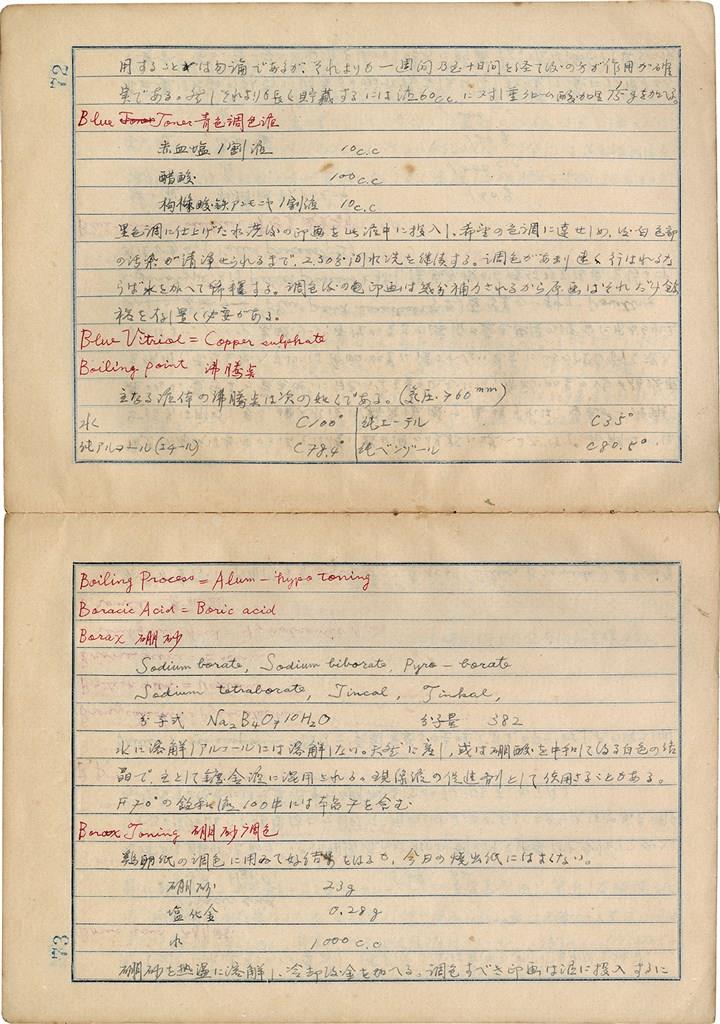 72
用することは勿論であるが、それよりも一週間乃至十日間を経て後の方が作用が確
実である。然しそれよりも長く貯蔵するには液60c.c.に対し重クローム酸加里
Blue Toner 青色調色液
赤血塩1割液 10c.c
醋酸 100c.c
枸櫞酸鉄アンモニヤ1割液 10c.c
黒色調に仕上げた水洗後の印画を此液中に投入し、希望の色調に達せしめ、後白色部
の汚染が清浄せられるまで、2.30分間水洗を継続する。調色があまり速く行はれるな
らば水を加へて稀釋する。調色後の印画は幾分補力されるから原画はそれだけ餘
裕を 置く必要がある。
Blue Vitriol = Copper sulphate
Boiling point 沸騰点
主なる液体の沸騰点は次の如くである。(気圧 760mm)
水 C100° 純エーテル C35°
純アルコール(エチール) C78.4° 純ベンゾール C80.5°
Boiling Process = Alum-hypo toning
Boracic Acid = Boric acid
Borax 硼砂
Sodium borate, Sodium biborate, Pyro-borate
Sodium tetraborate, Tincal, Tinkal,
分子式 Na2B4O7 10H2O 分子量 382
水に溶解しアルコールには溶解しない。天然に産し、或は硼酸を中和して得る白色の結
晶で、主として鍍金液に混用される。現像液の促進剤として使用することがある。
F70°の飽和液100中には本品7を含む
Borax Toning 硼砂調色
鶏卵紙の調色に用ゐて好結果を得るも、今日の焼出紙にはよくない。
硼砂 23g
塩化金 0.28g
水 1000c.c
硼砂を熱湯に溶解し、冷却後金を加へる。調色すべき印画は湿に投入するに
73